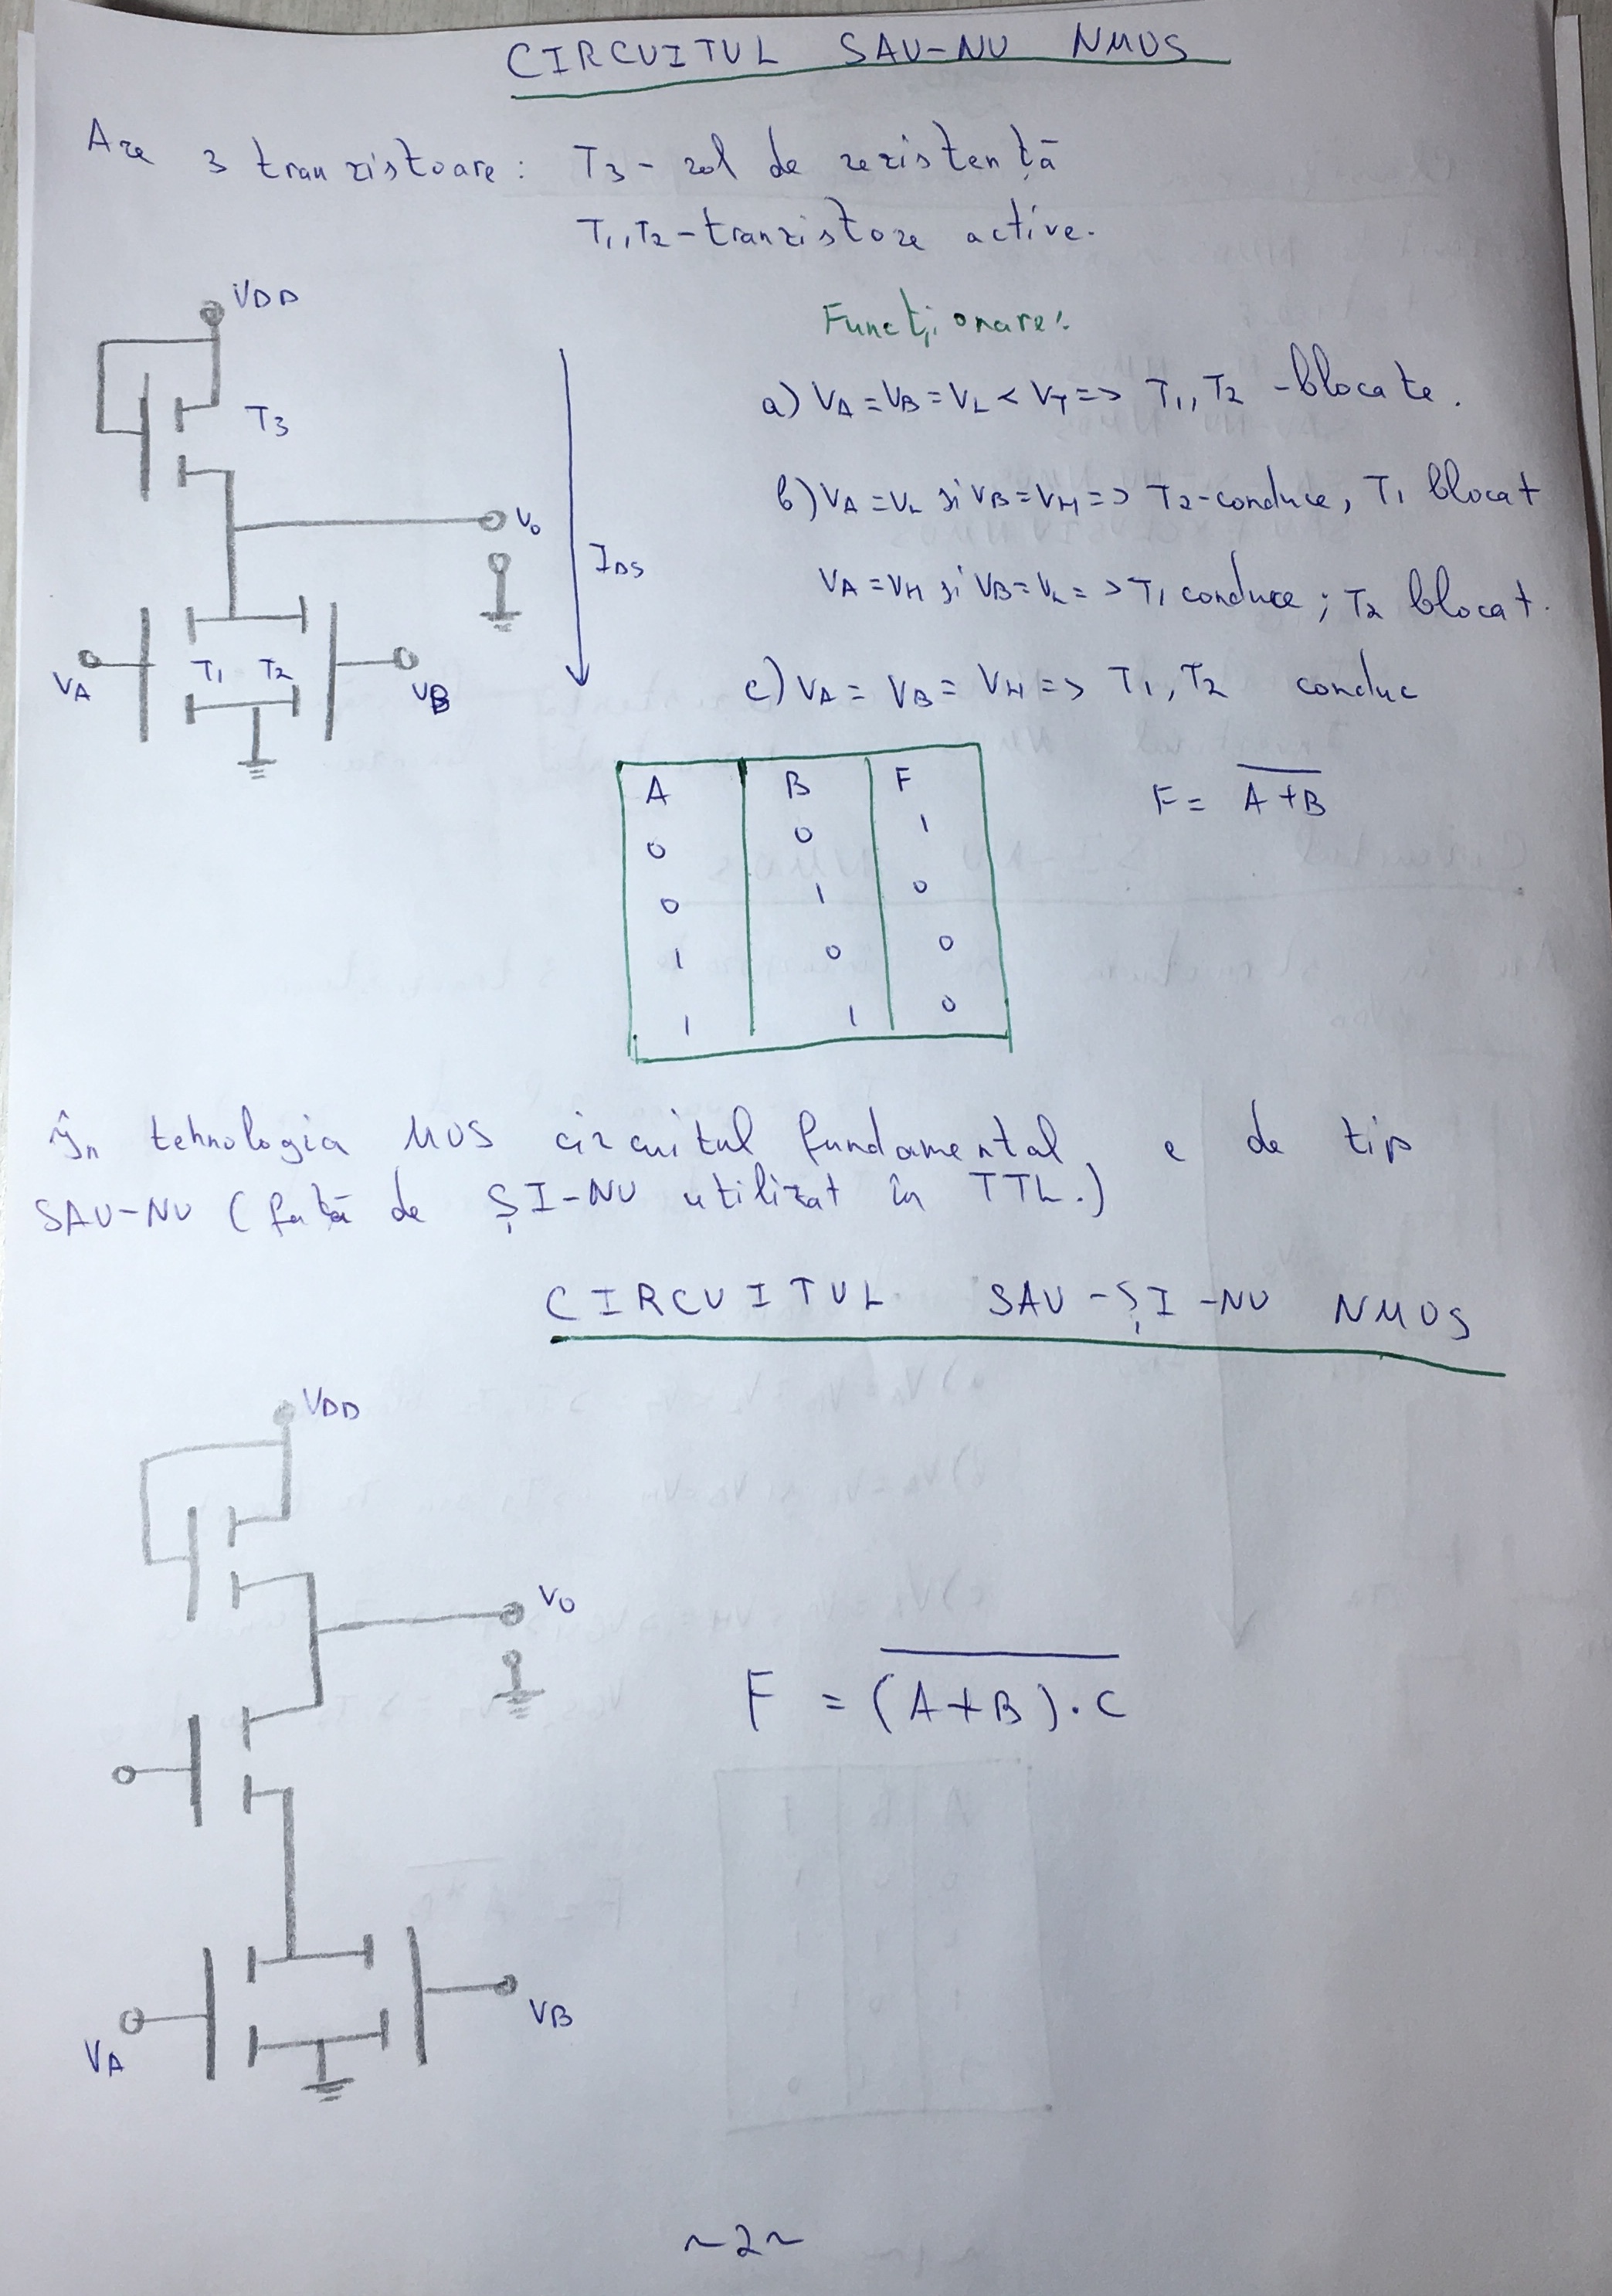 CIRCUITUL SAU-NU NMOS
Are 3 tranzistoare: T3 - rol de rezistență
T1, T2 - tranzistore active.
VDD
Funcționare:
T3
a) VA = VB = VL < VT => T1, T2 - blocate.
b) VA = VL și VB = VH => T2 - conduce, T1 blocat
V0
IDS
VA = VH și VB = VL => T1 conduce; T2 blocat.
VA T1 T2 VB
c) VA = VB = VH => T1, T2 conduc
A B F
0 0 1
0 1 0
1 0 0
1 1 0
F = \overline{A+B}
În tehnologia MOS circuitul fundamental e de tip
SAU-NU (față de ȘI-NU utilizat în TTL.)
CIRCUITUL SAU-ȘI-NU NMOS
VDD
V0
F = \overline{(A+B).C}
VA
VB
~2~